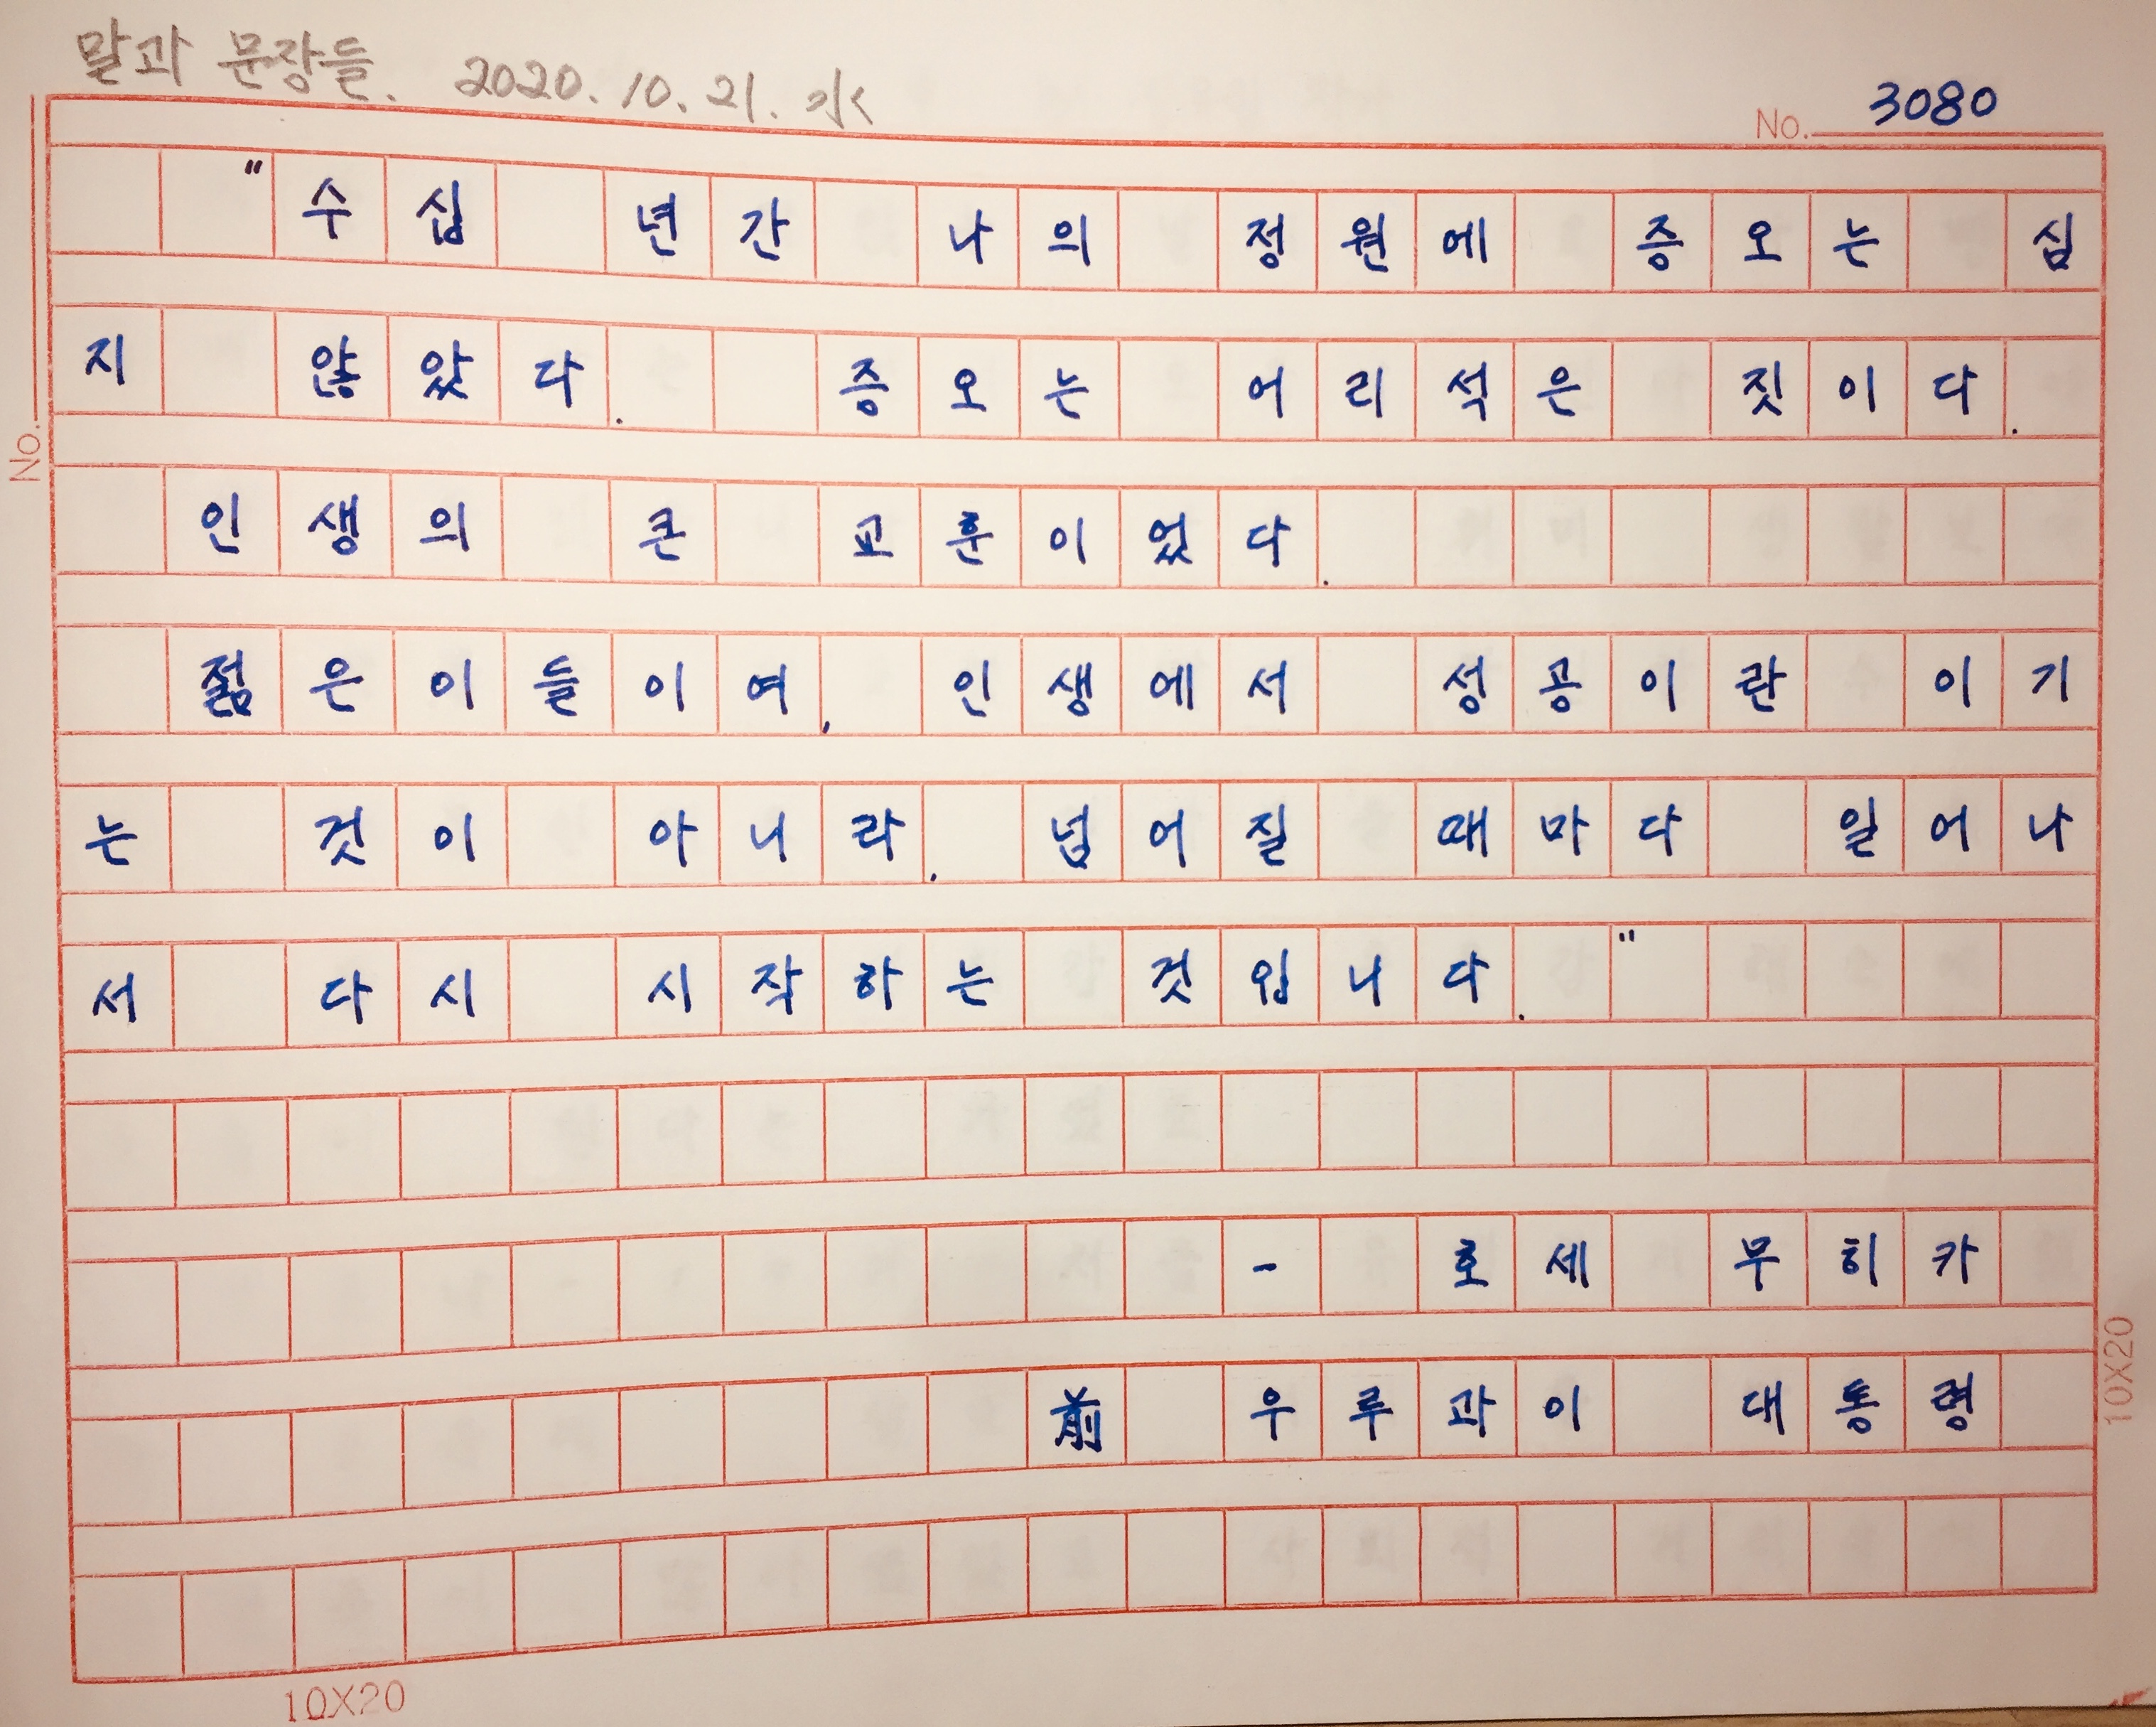 말과 문장들. 2020. 10. 21. 水
No. 3080
"수십 년간 나의 정원에 증오는 심
지 않았다. 증오는 어리석은 짓이다.
인생의 큰 교훈이었다.
젊은이들이여, 인생에서 성공이란 이기
는 것이 아니라, 넘어질 때마다 일어나
서 다시 시작하는 것입니다."
- 호세 무히카
前 우루과이 대통령
No.
10X20
10X20